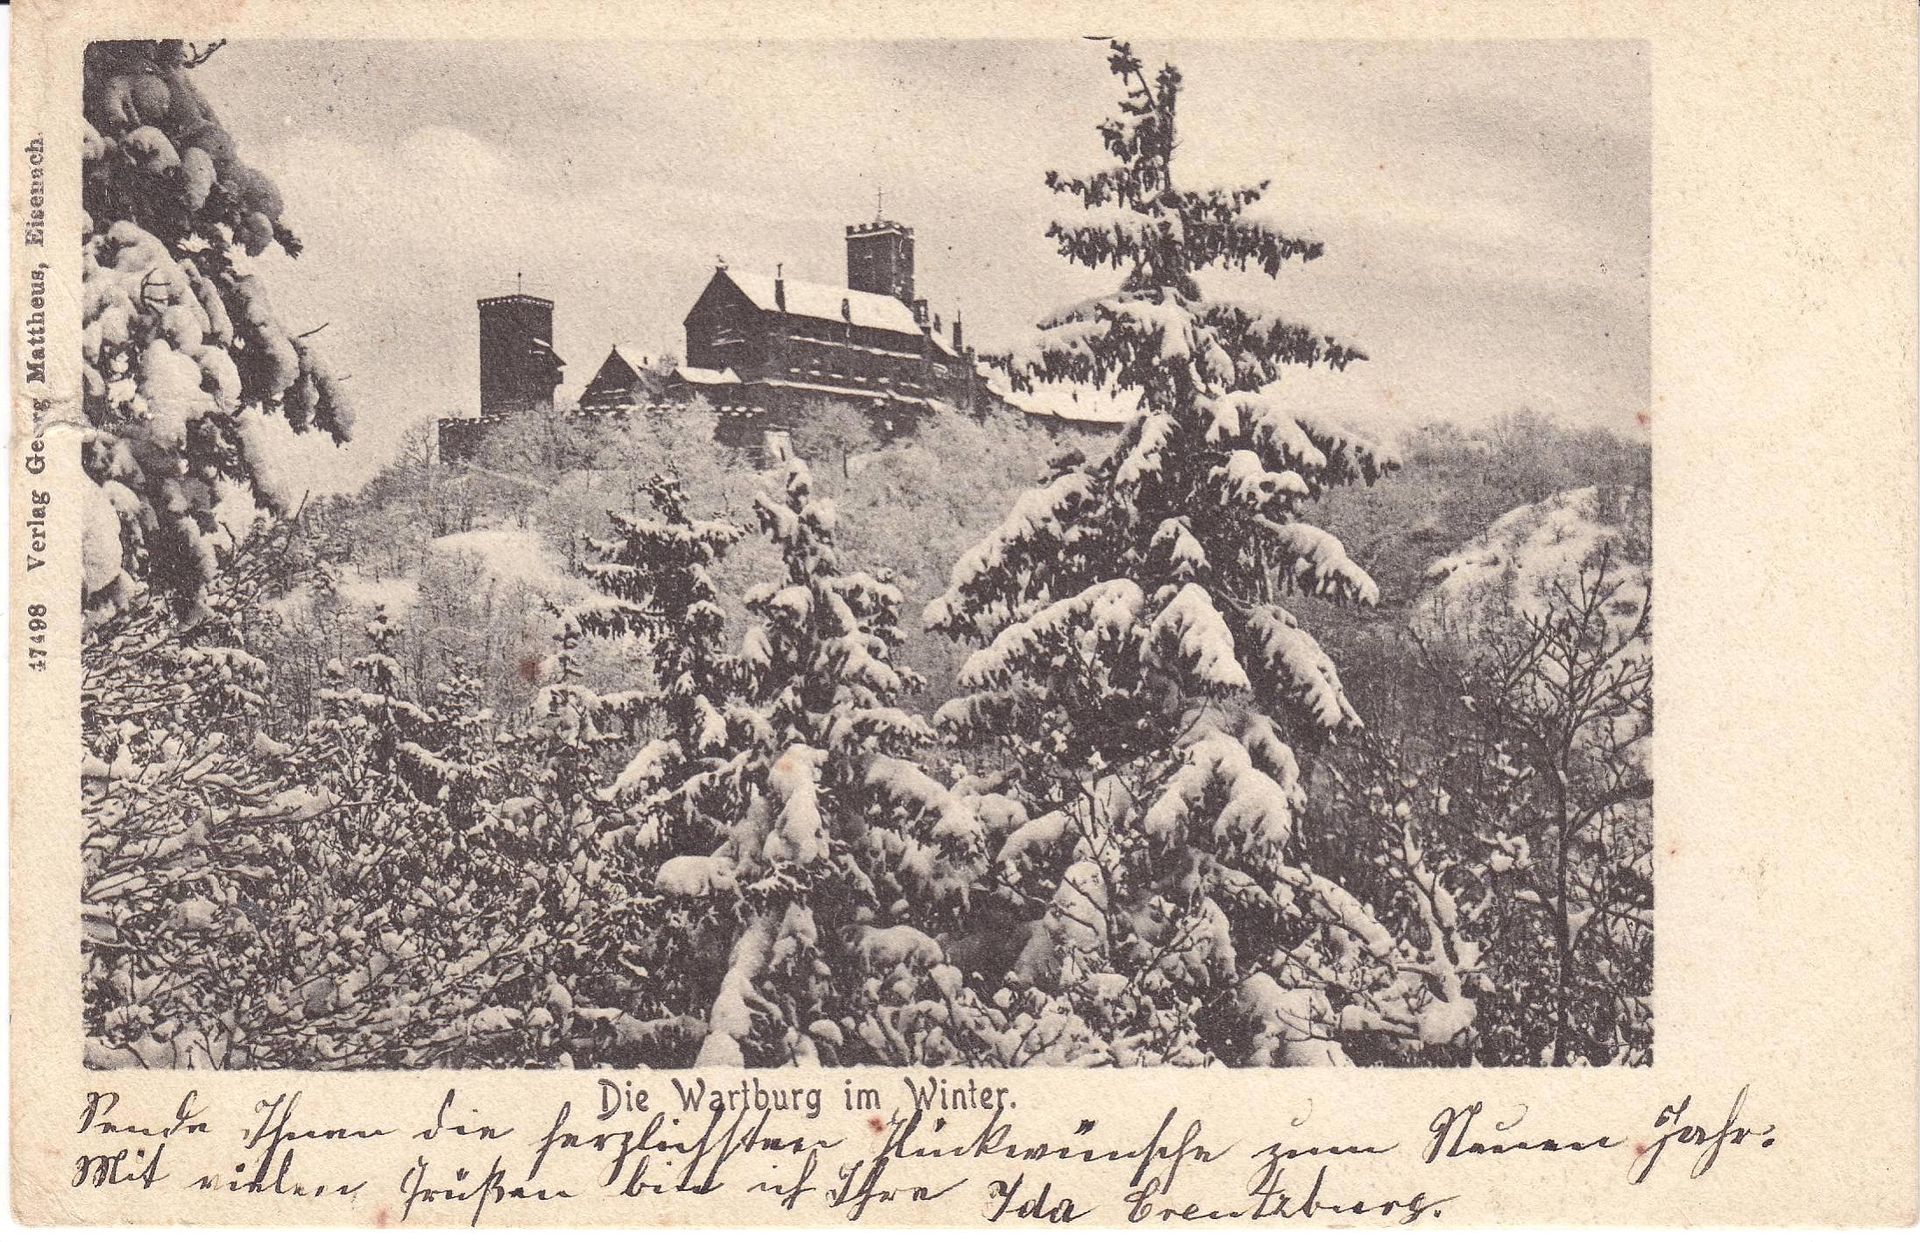 47498 Verlag Georg Mattheus, Eisenach.
Die Wartburg im Winter.
Sende Ihnen die herzlichsten Glückwünsche zum Neuen Jahr.
Mit vielen Grüßen bin ich Ihre Ida Creutzburg.